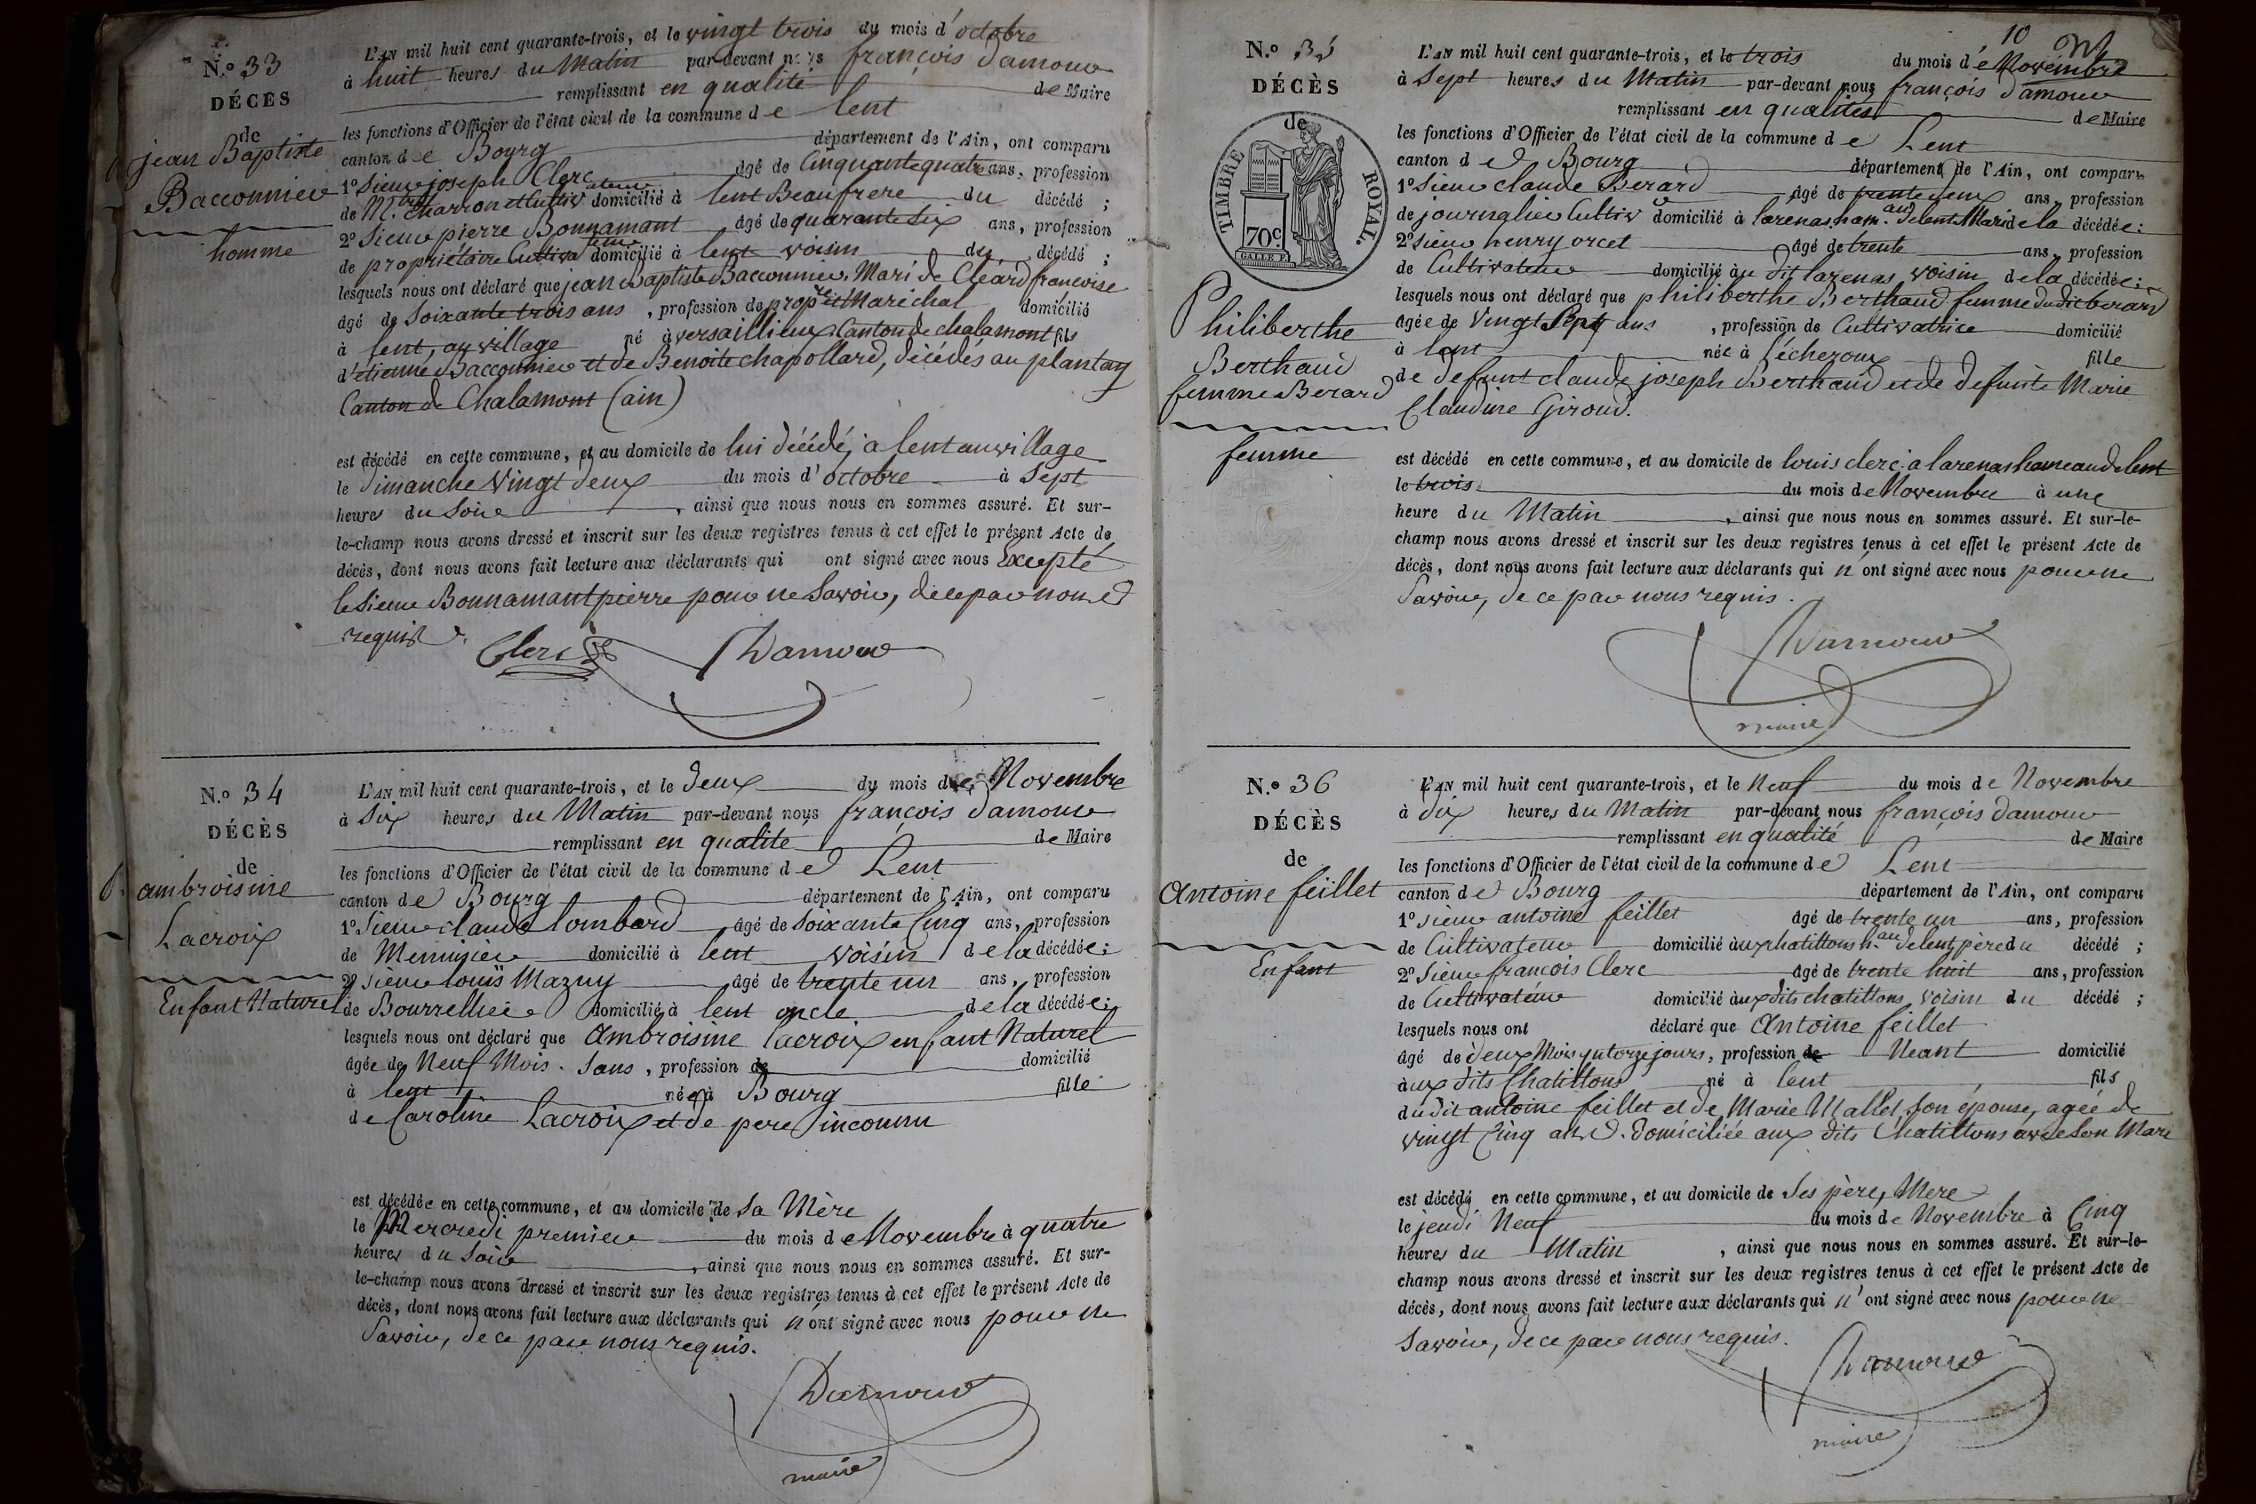 N.º 33
DÉCÈS
de
jean Baptiste
Bacconnier
homme
L'AN mil huit cent quarante-trois, et le vingt trois du mois d'octobre
à huit heures du Matin par-devant nous françois Damour
remplissant en qualité de Maire
les fonctions d'Officier de l'état civil de la commune de lent
canton de Bourg département de l'Ain, ont comparu
1º Sieur joseph Clerc âgé de Cinquante quatre ans, profession
de M.tre charron et Cultivateur domicilié à lent Beaufrere du décédé ;
2º Sieur pierre Bonnamant âgé de quarante Six ans, profession
de propriétaire Cultivateur domicilié à lent voisin du décédé ;
lesquels nous ont déclaré que jean Baptiste Bacconnier, Mari de Cléard francoise
âgé de Soixante trois ans , profession de prop.re et Maréchal domicilié
à lent, au village né à versaillieux Canton de chalamont fils
d'etienne Bacconnier et de Benoite chapollard, décédés au plantay
Canton de Chalamont (ain)
est décédé en cette commune, et au domicile de lui décédé, à lent au village
le Dimanche Vingt deux du mois d'octobre à Sept
heures du Soir , ainsi que nous nous en sommes assuré. Et sur-
le-champ nous avons dressé et inscrit sur les deux registres tenus à cet effet le présent Acte de
décès, dont nous avons fait lecture aux déclarants qui ont signé avec nous Excepté
le Sieur Bonnamant pierre pour ne Savoir, de ce par nous
requis.
Clerc Damour
N.º 34
DÉCÈS
de
ambroisine
Lacroix
Enfant Naturel
L'AN mil huit cent quarante-trois, et le Deux du mois de Novembre
à Six heures du Matin par-devant nous françois Damour
remplissant en qualité de Maire
les fonctions d'Officier de l'état civil de la commune de Lent
canton de Bourg département de l'Ain, ont comparu
1º Sieur claude lombard âgé de Soixante Cinq ans, profession
de Menuisier domicilié à lent voisin de la décédée ;
2º Sieur louis Mazuy âgé de trente un ans, profession
de Bourrellier domicilié à lent oncle de la décédée ;
lesquels nous ont déclaré que Ambroisine lacroix enfant Naturel
âgée de Neuf Mois. Sans , profession de domicilié
à lent née à Bourg fille
de Caroline Lacroix et de pere inconnu
est décédée en cette commune, et au domicile de Sa Mère
le Mercredi premier du mois de Novembre à quatre
heures du Soir , ainsi que nous nous en sommes assuré. Et sur-
le-champ nous avons dressé et inscrit sur les deux registres tenus à cet effet le présent Acte de
décès, dont nous avons fait lecture aux déclarants qui n'ont signé avec nous pour ne
Savoir, de ce par nous requis.
Damour
maire
10
N.º 35
DÉCÈS
de
TIMBRE ROYAL.
70c
Philiberthe
Berthaud
femme Berard
femme
L'AN mil huit cent quarante-trois, et le trois du mois de Novembre
à Sept heures du Matin par-devant nous françois Damour
remplissant en qualités de Maire
les fonctions d'Officier de l'état civil de la commune de Lent
canton de Bourg département de l'Ain, ont comparu
1º Sieur claude Berard âgé de trente deux ans, profession
de journalier Cultiv.r domicilié à larenas ham.au de lent Mari de la décédée ;
2º Sieur henry orcet âgé de trente ans, profession
de Cultivateur domicilié au dit larenas voisin de la décédée ;
lesquels nous ont déclaré que philiberthe Berthaud femme du dit berard
âgée de Vingt Sept ans , profession de Cultivatrice domicilié
à lent née à Lécheroux fille
de defunt claude joseph Berthaud et de defunte Marie
Claudine Giroud.
est décédé en cette commune, et au domicile de louis clerc à larenas hameau de lent
le trois du mois de Novembre à une
heure du Matin , ainsi que nous nous en sommes assuré. Et sur-le-
champ nous avons dressé et inscrit sur les deux registres tenus à cet effet le présent Acte de
décès, dont nous avons fait lecture aux déclarants qui n'ont signé avec nous pour ne
Savoir, de ce par nous requis.
Damour
maire
N.º 36
DÉCÈS
de
Antoine feillet
Enfant
L'AN mil huit cent quarante-trois, et le Neuf du mois de Novembre
à dix heures du Matin par-devant nous françois Damour
remplissant en qualité de Maire
les fonctions d'Officier de l'état civil de la commune de Lent
canton de Bourg département de l'Ain, ont comparu
1º Sieur antoine feillet âgé de trente un ans, profession
de Cultivateur domicilié aux chatillons h.au de lent père du décédé ;
2º Sieur francois Clerc âgé de trente huit ans, profession
de Cultivateur domicilié aux dits chatillons voisin du décédé ;
lesquels nous ont déclaré que Antoine feillet
âgé de deux Mois quatorze jours, profession de Neant domicilié
aux dits Chatillons né à lent fils
du dit antoine feillet et de Marie Mallet, Son épouse, agée de
vingt Cinq ans. domiciliée aux dits Chatillons avec Son Mari
est décédé en cette commune, et au domicile de Ses père, Mere
le jeudi Neuf du mois de Novembre à Cinq
heures du Matin , ainsi que nous nous en sommes assuré. Et sur-le-
champ nous avons dressé et inscrit sur les deux registres tenus à cet effet le présent Acte de
décès, dont nous avons fait lecture aux déclarants qui n'ont signé avec nous pour ne
Savoir, de ce par nous requis.
Damour
maire